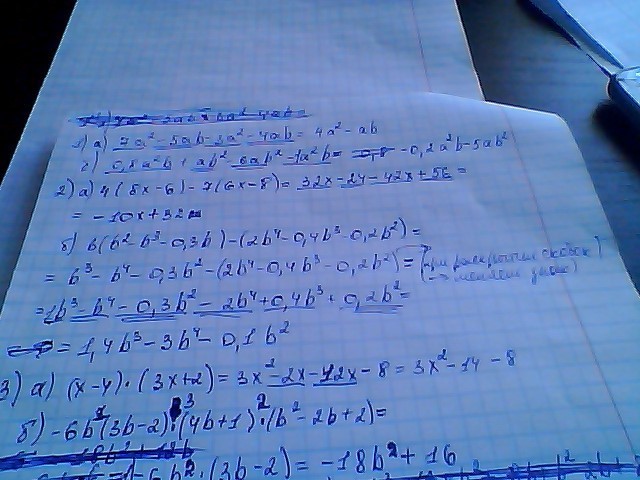 1) а) 7a² - 5ab - 3a² - 4ab = 4a² - ab
0,8a²b + ab² - 6ab² - 1a²b = - 0,2a²b - 5ab²
2) а) 4(8x-6) - 7(6x-8) = 32x - 24 - 42x + 56 =
= -10x + 32
б) b(b² - b³ - 0,3b) - (2b⁴ - 0,4b³ - 0,2b²) =
= b³ - b⁴ - 0,3b² - (2b⁴ - 0,4b³ - 0,2b²) = (при раскрытии скобок
→ меняем знак)
= 1b³ - b⁴ - 0,3b² - 2b⁴ + 0,4b³ + 0,2b² =
= 1,4b³ - 3b⁴ - 0,1b²
3) а) (x-4)·(3x+2) = 3x² - 2x - 12x - 8 = 3x² - 14 - 8
б) -6b (3b-2) (4b+1) (b² - 2b + 2) =
-6b²·(3b-2) = -18b² + 16